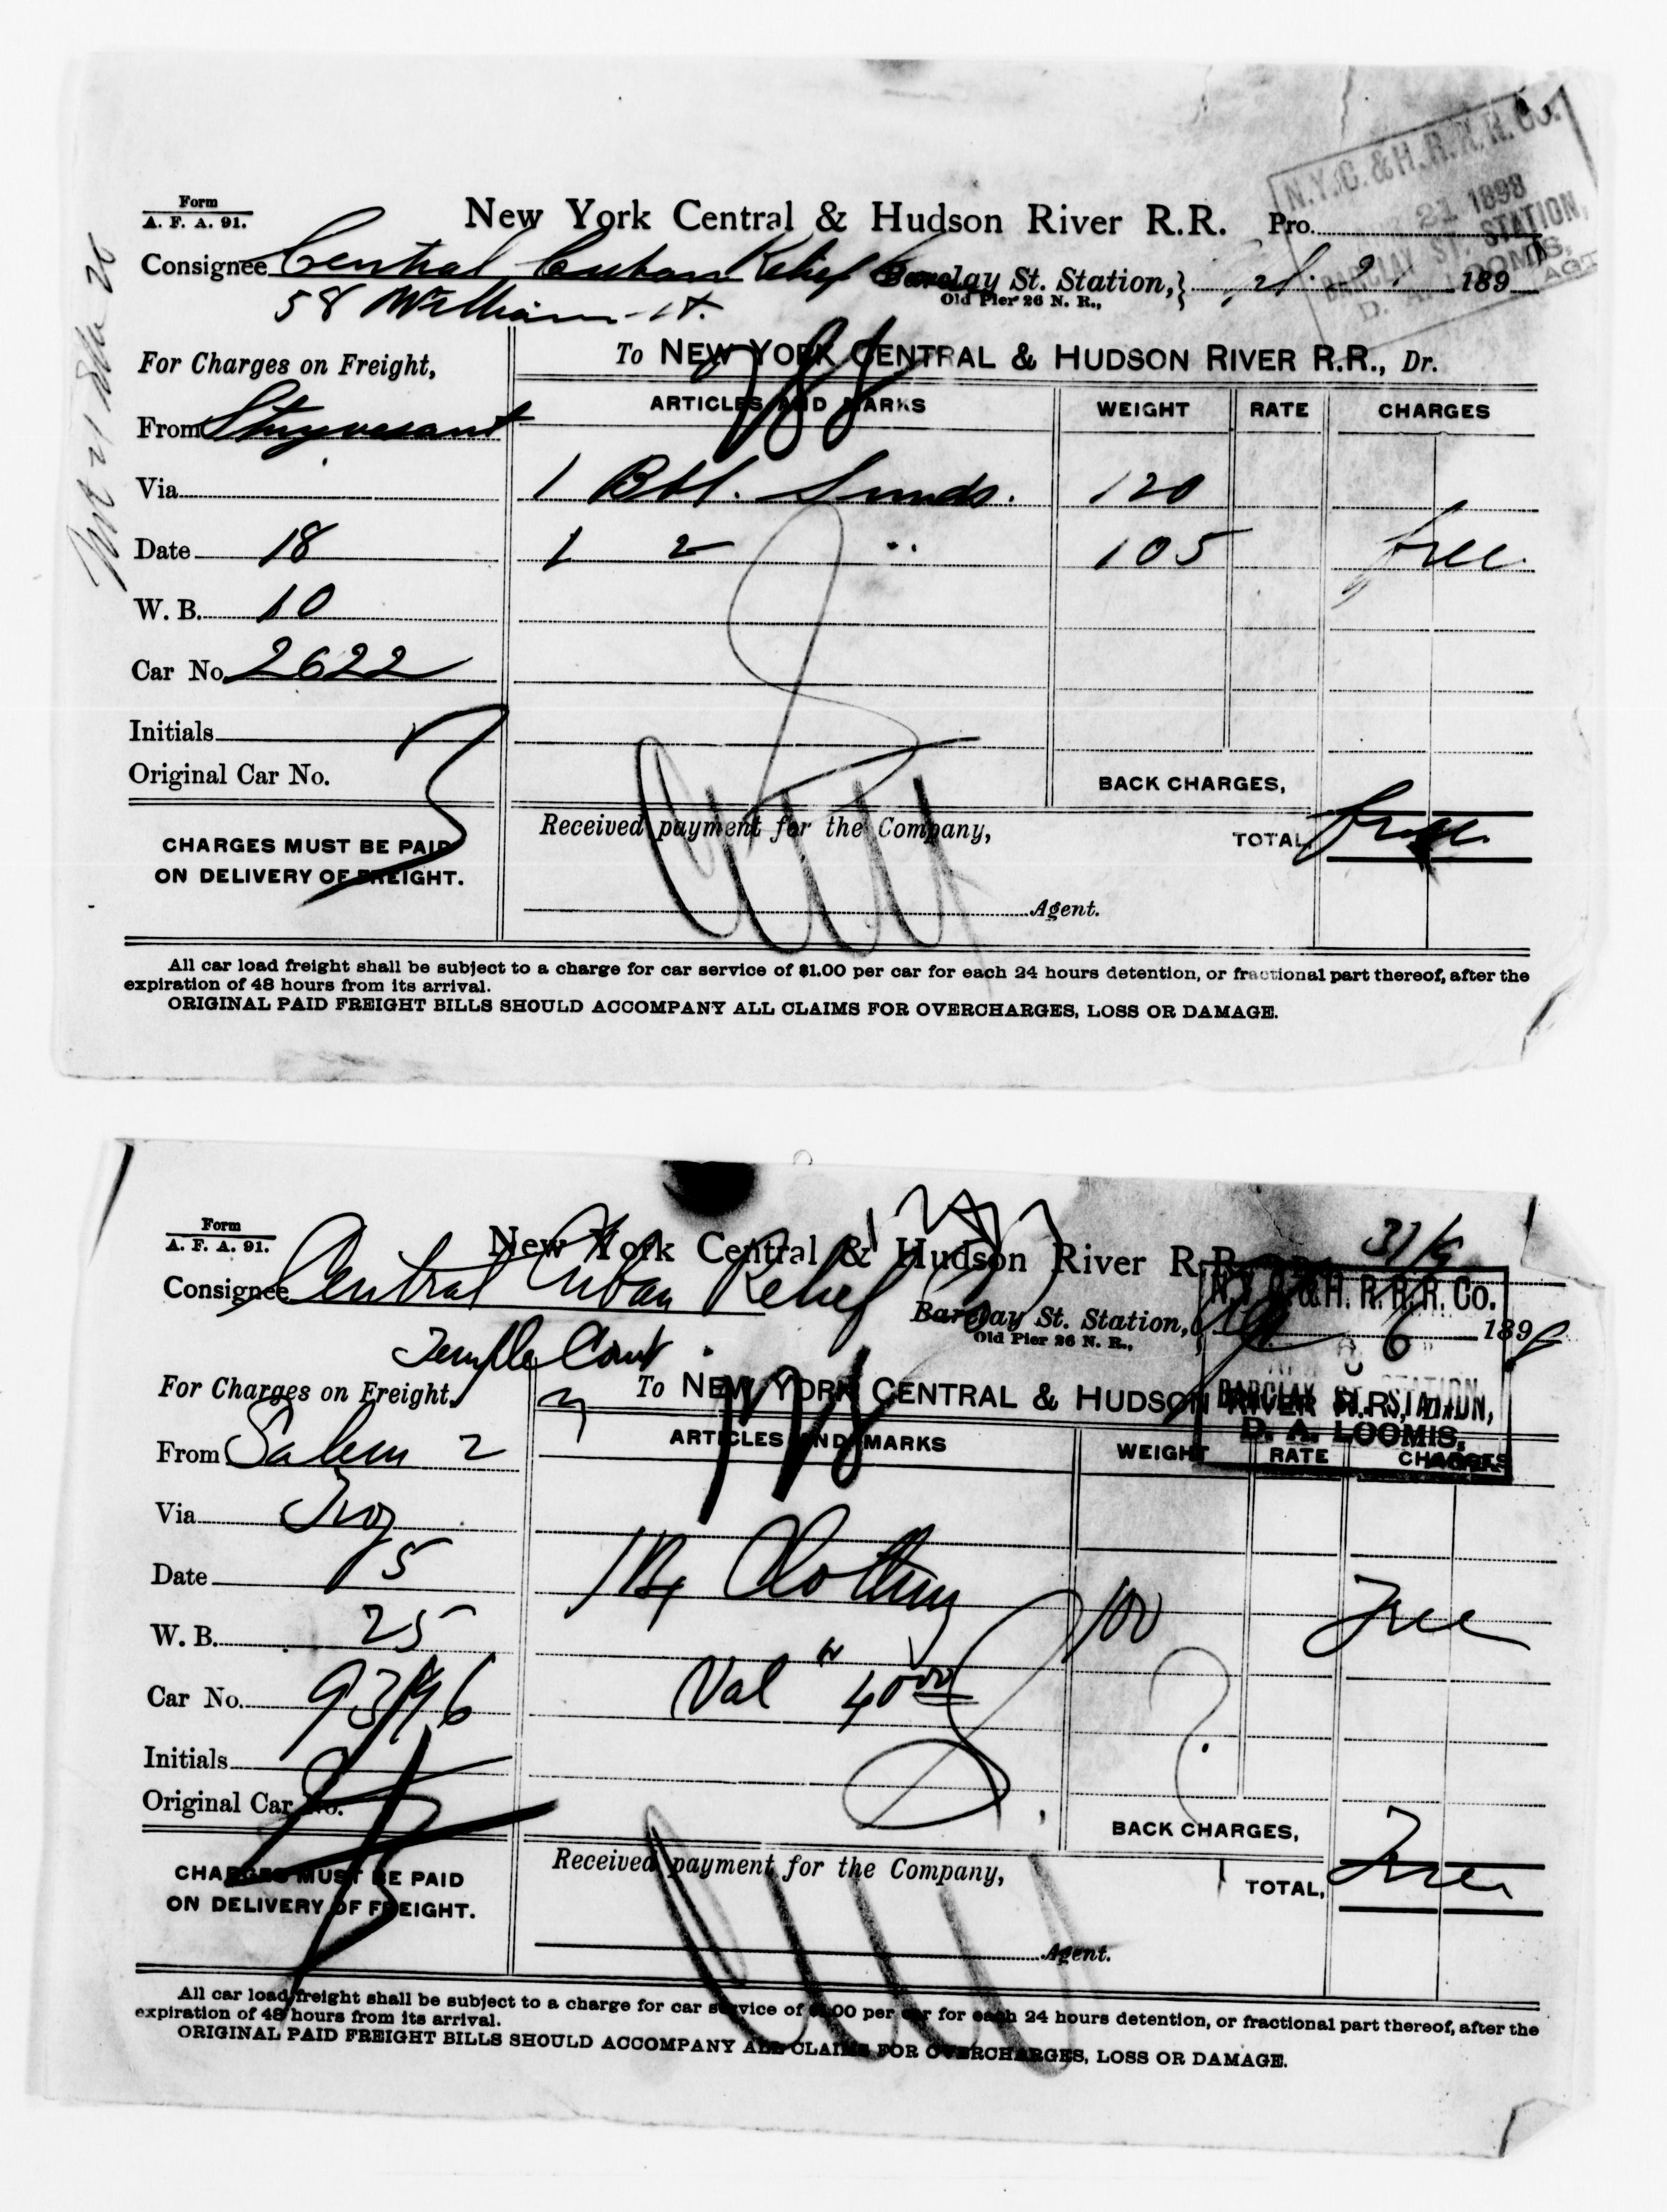 N.Y.C. & H.R.R.R. CO.
21 1898
BARCLAY ST. STATION,
D. A. LOOMIS,
AGT
Form
A. F. A. 91.
New York Central & Hudson River R.R. Pro.
Consignee Central Cuban Relief Barclay St. Station, 189
Old Pier 26 N. R.,
58 William St.
For Charges on Freight,
To NEW YORK CENTRAL & HUDSON RIVER R.R., Dr.
ARTICLES AND MARKS WEIGHT RATE CHARGES
From Stuyvesant
Via 1 Bbl. Sunds. 120
Date 18 1 2 " 105 free
W. B. 10
Car No. 2622
Initials
Original Car No.
BACK CHARGES,
CHARGES MUST BE PAID
ON DELIVERY OF FREIGHT.
Received payment for the Company,
TOTAL, free
Agent.
All car load freight shall be subject to a charge for car service of $1.00 per car for each 24 hours detention, or fractional part thereof, after the
expiration of 48 hours from its arrival.
ORIGINAL PAID FREIGHT BILLS SHOULD ACCOMPANY ALL CLAIMS FOR OVERCHARGES, LOSS OR DAMAGE.
Form
A. F. A. 91.
New York Central & Hudson River R.R.
N.Y.C. & H. R. R. R. Co.
Consignee Central Cuban Relief
Barclay St. Station, 6 1898
Old Pier 26 N. R.,
Temple Court
BARCLAY ST. STATION,
D. A. LOOMIS,
For Charges on Freight,
To NEW YORK CENTRAL & HUDSON RIVER R.R., Dr.
ARTICLES AND MARKS WEIGHT RATE CHARGES
From Salem 2
Via Troy
Date 5 1 Bx Clothing 100 Free
W. B. 25
Car No. Val 40 00
Initials
Original Car No.
BACK CHARGES,
CHARGES MUST BE PAID
ON DELIVERY OF FREIGHT.
Received payment for the Company,
TOTAL, Free
Agent.
All car load freight shall be subject to a charge for car service of $1.00 per car for each 24 hours detention, or fractional part thereof, after the
expiration of 48 hours from its arrival.
ORIGINAL PAID FREIGHT BILLS SHOULD ACCOMPANY ALL CLAIMS FOR OVERCHARGES, LOSS OR DAMAGE.